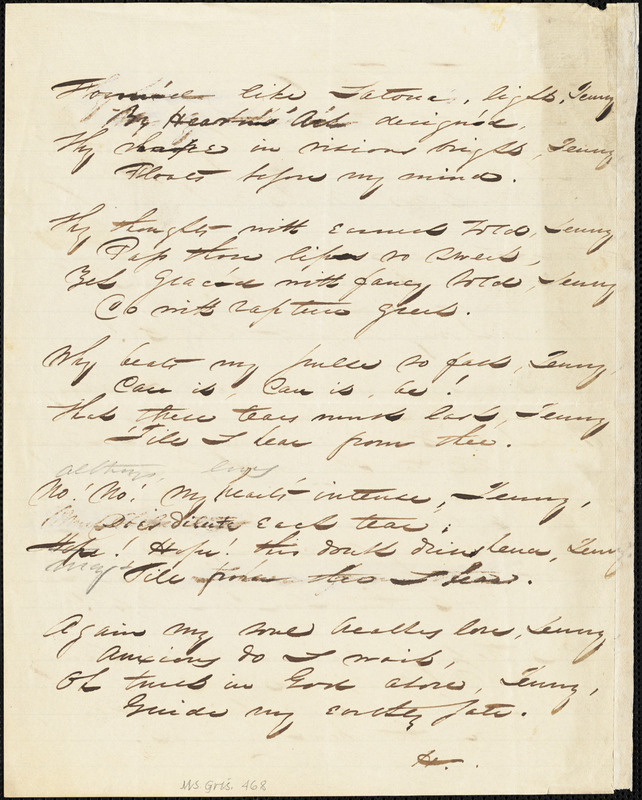 like Latona, light, Jenny
By Heart's designed,
Thy shape in visions bright, Jenny
Floats before my mind.
Thy thoughts with told, Jenny
Pass those lips so sweet,
Yet Graced with fancy bold, Jenny
Do with rapture greet.
Why beats my pulse so fast, Jenny,
Can it, Can it, be!
That these tears must last, Jenny
Till I hear from thee.
No! No! My heart's intense, Jenny,
Does dilute Each tear;
Hope! Hope! this doubt, Jenny
Till from thee I hear.
Again my soul breathes love, Jenny
Anxious do I wait,
Oh trust in God above, Jenny,
Guide my earthly fate.
H.
Ms. Gris. 468